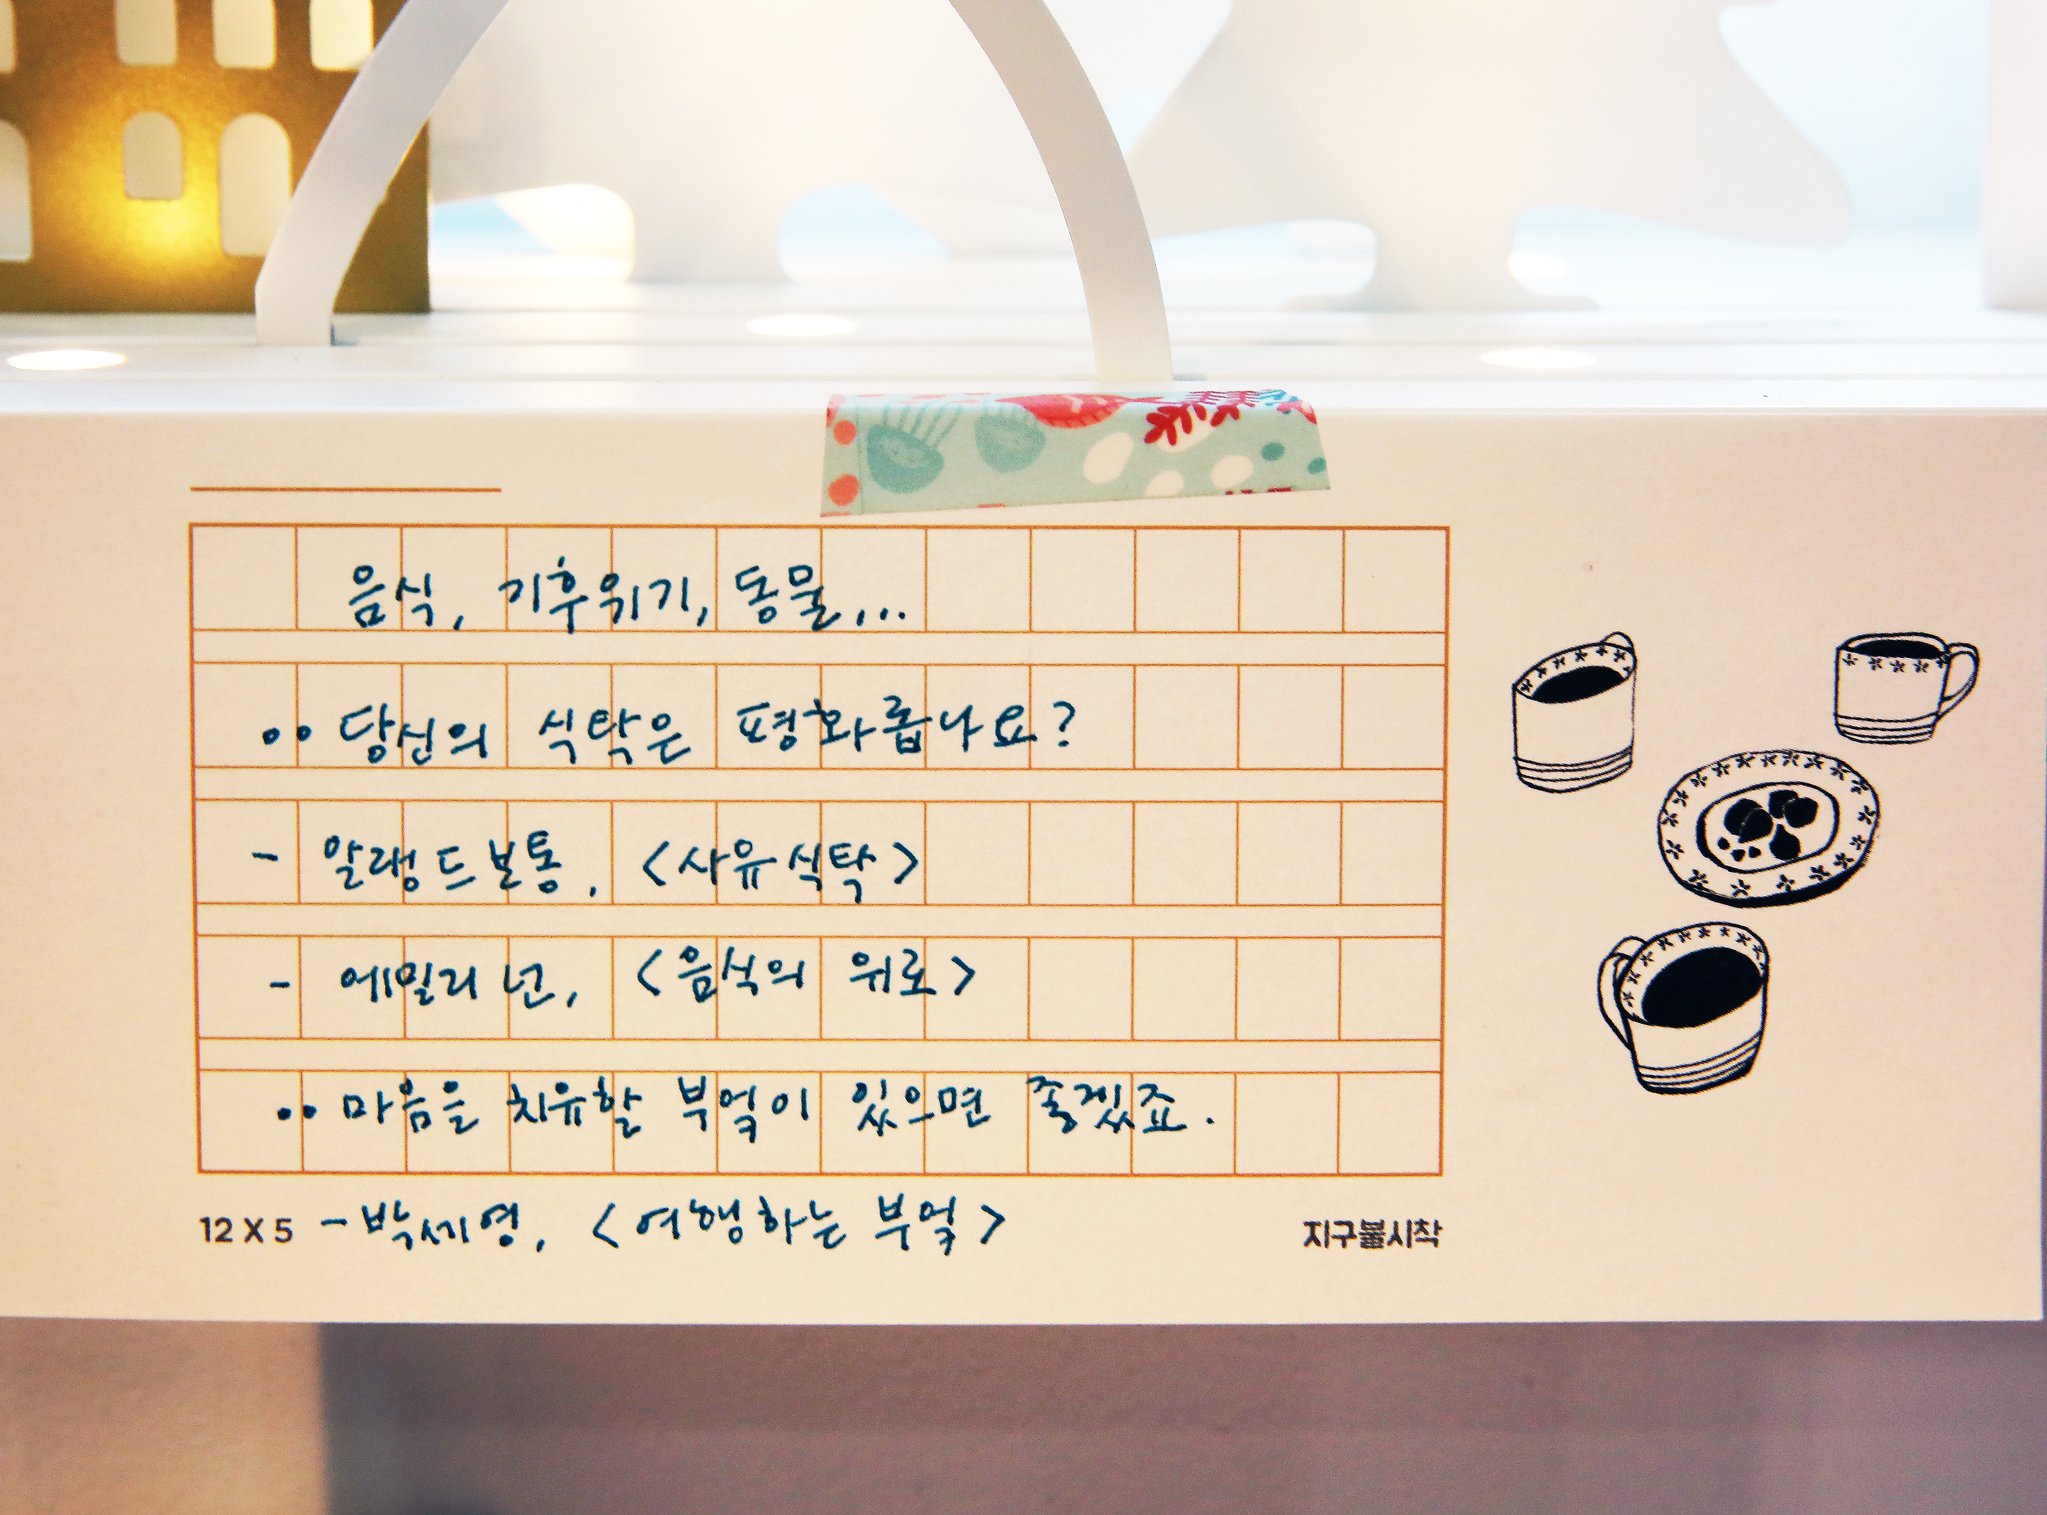 음식, 기후위기, 동물...
●● 당신의 식탁은 평화롭나요?
- 알랭 드 보통, <사유식탁>
- 에밀리 넌, <음식의 위로>
●● 마음을 치유할 부엌이 있으면 좋겠죠.
12 X 5 - 박세영, <여행하는 부엌> 지구불시착